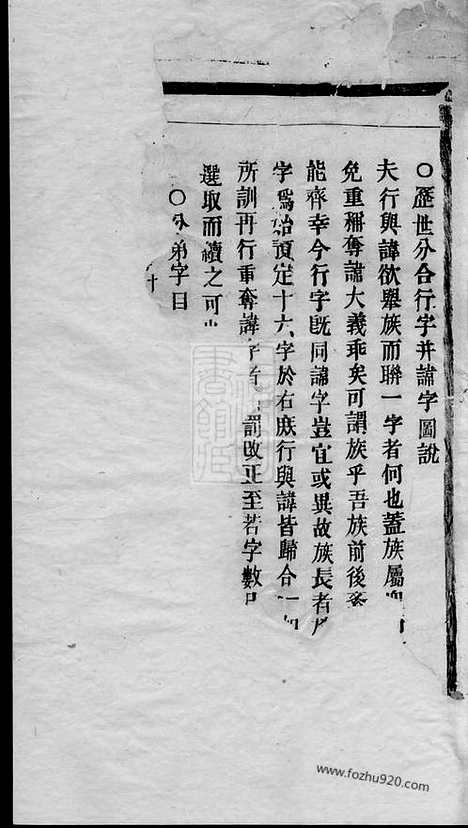 ○歷世分合行字并諱字圖說
夫行與諱欲舉族而聯一字者何也蓋族屬
免重稱奪諱大義乖矣可謂族乎吾族前後
能齊幸今行字既同諱字豈宜或異故族長者
字爲始預定十六字於右庶行與諱皆歸合一
所訓再行重奪諱字者罰改正至若字數
選取而續之可
弟字曰
www.fozhu920.com